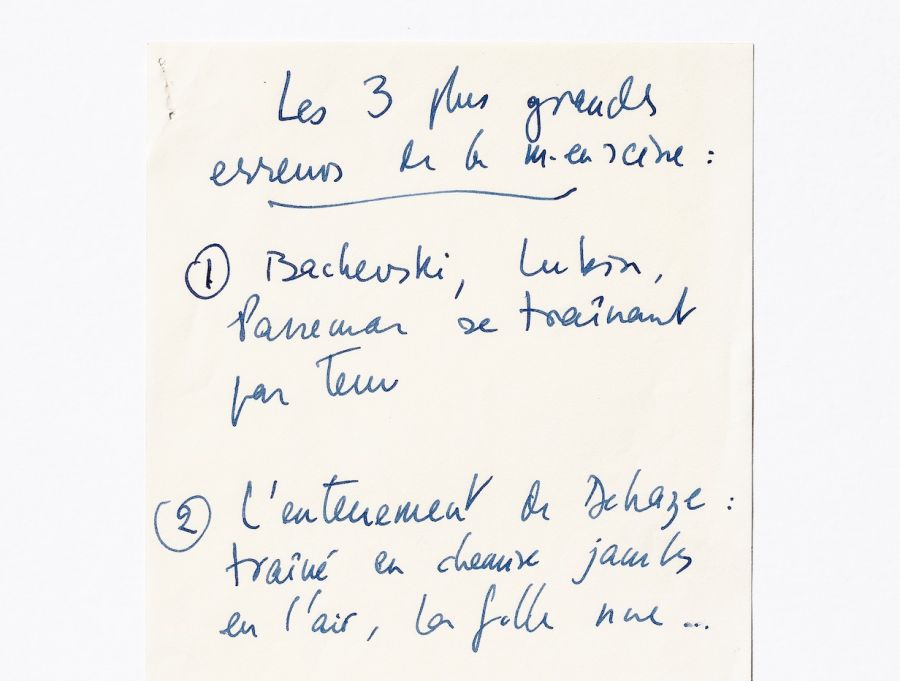 Les 3 plus grandes
erreurs de la m.en scène :
① Bachevski, Lubin,
Passemar se traînant
par terre
② L'enterrement de Dehaze :
traîné en chemise jambes
en l'air, la folle nue ...